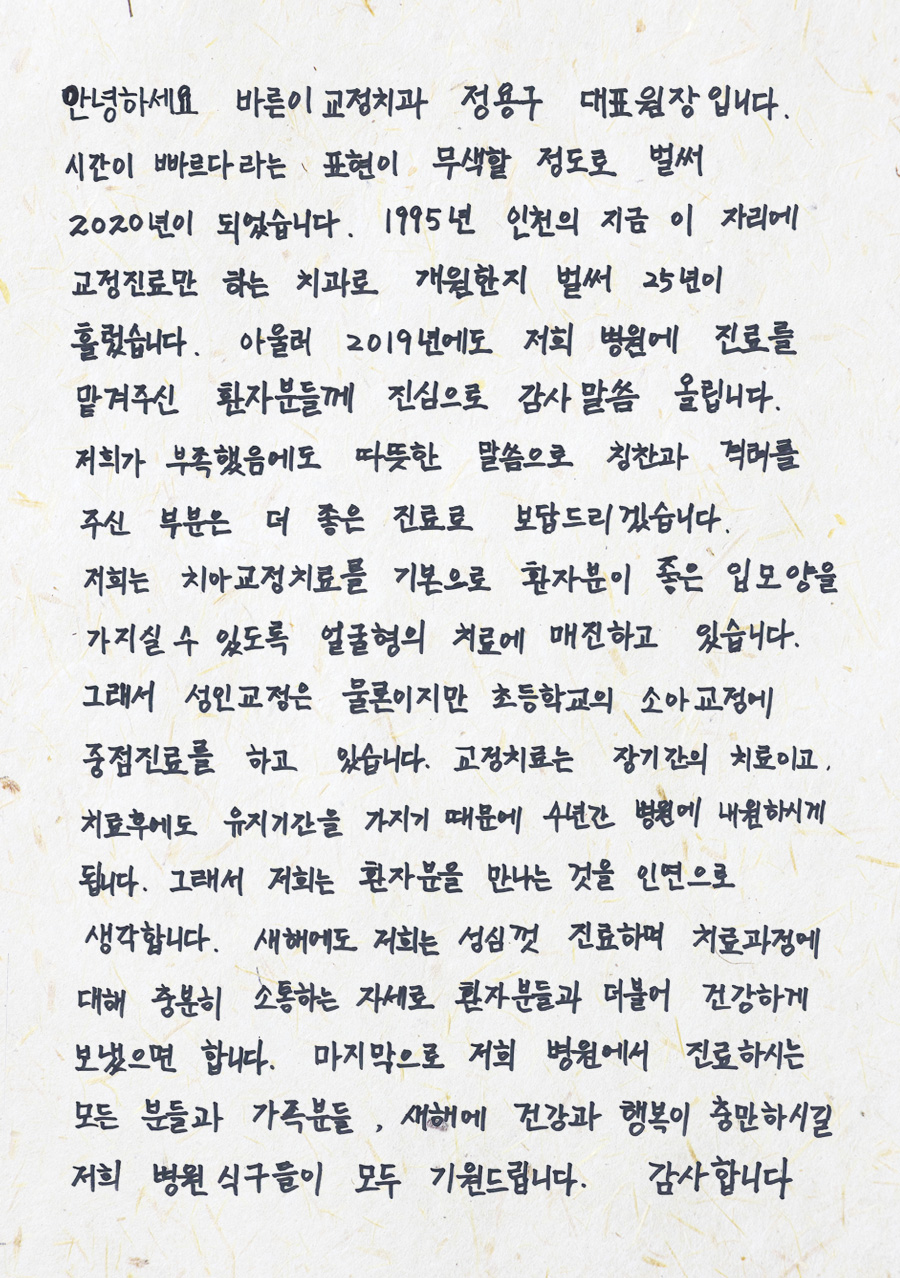 안녕하세요 바른이교정치과 정용구 대표원장입니다.
시간이 빠르다라는 표현이 무색할 정도로 벌써
2020년이 되었습니다. 1995년 인천의 지금 이 자리에
교정진료만 하는 치과로 개원한지 벌써 25년이
흘렀습니다. 아울러 2019년에도 저희 병원에 진료를
맡겨주신 환자분들께 진심으로 감사말씀 올립니다.
저희가 부족했음에도 따뜻한 말씀으로 칭찬과 격려를
주신 부분은 더 좋은 진료로 보답드리겠습니다.
저희는 치아교정치료를 기본으로 환자분이 좋은 입모양을
가지실 수 있도록 얼굴형의 치료에 매진하고 있습니다.
그래서 성인교정은 물론이지만 초등학교의 소아교정에
중점진료를 하고 있습니다. 교정치료는 장기간의 치료이고,
치료후에도 유지기간을 가지기 때문에 4년간 병원에 내원하시게
됩니다. 그래서 저희는 환자분을 만나는 것을 인연으로
생각합니다. 새해에도 저희는 성심껏 진료하며 치료과정에
대해 충분히 소통하는 자세로 환자분들과 더불어 건강하게
보냈으면 합니다. 마지막으로 저희 병원에서 진료하시는
모든 분들과 가족분들, 새해에 건강과 행복이 충만하시길
저희 병원식구들이 모두 기원드립니다. 감사합니다